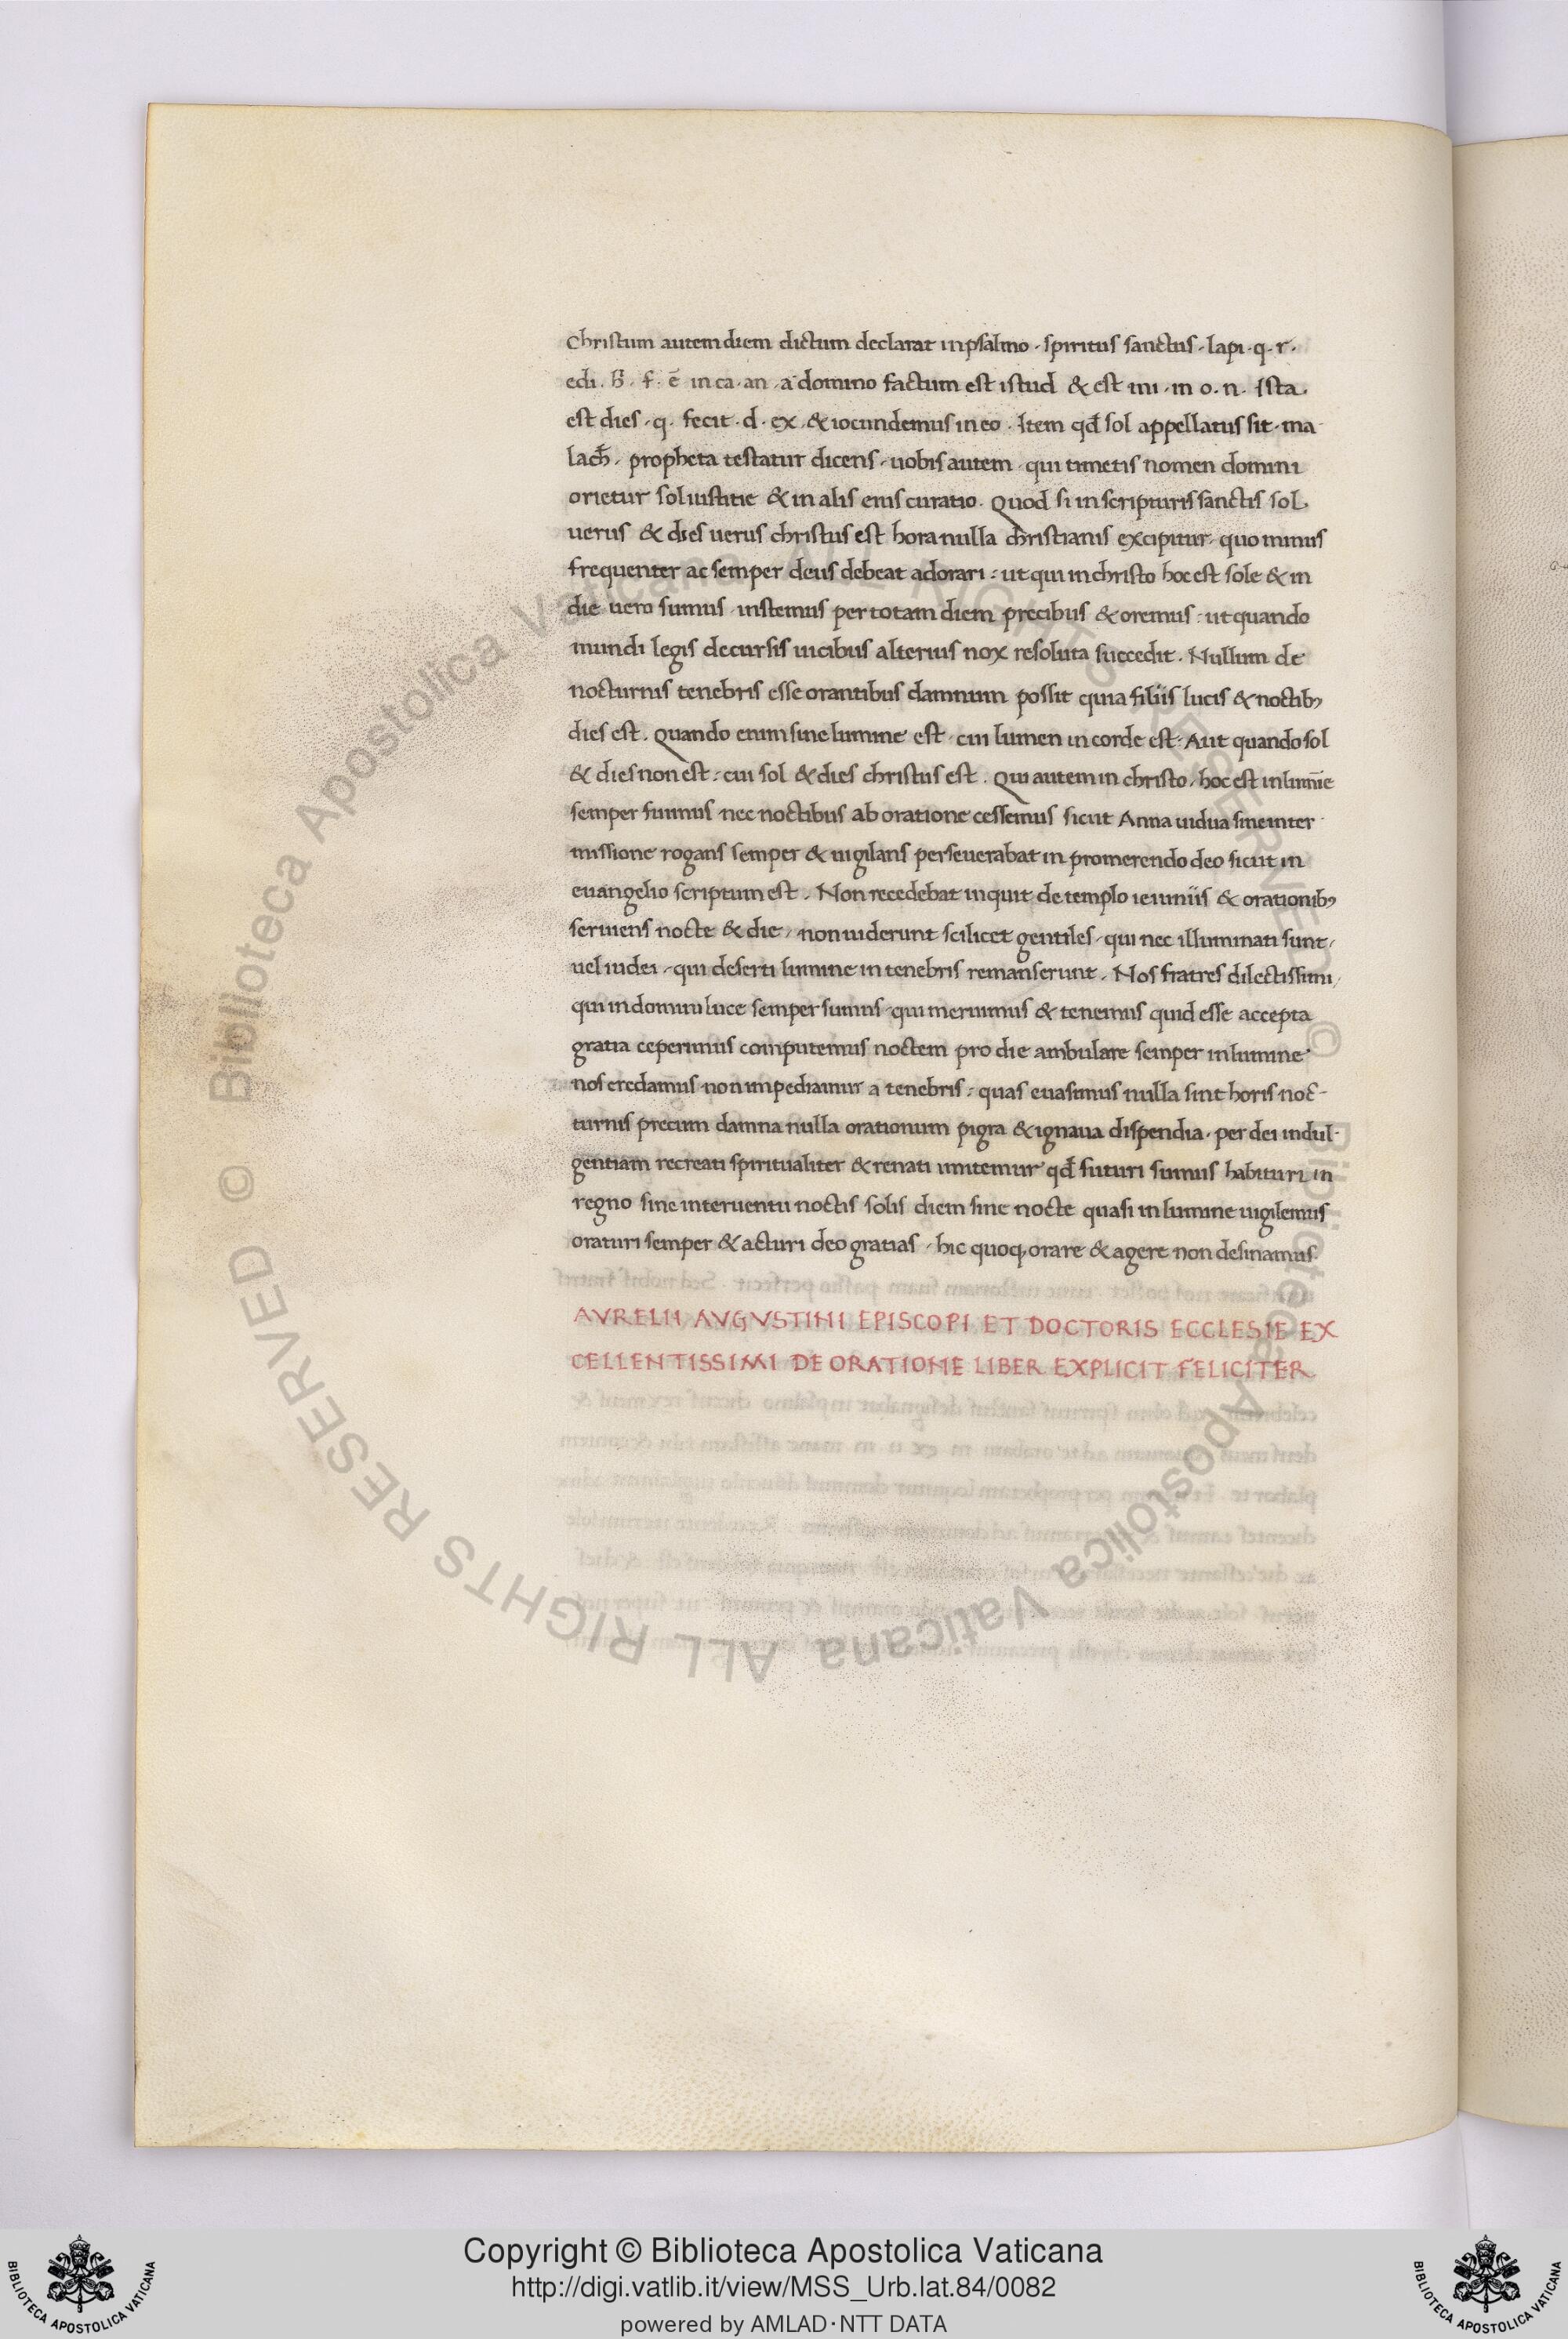 christum autem diem dictum declarat in psalmo · spiritus sanctus · lapi · q · r ·
edi · h̄ · f · ē in ca · an · a domino factum est istud & est mi · in o · n · Ista ·
est dies · q · fecit · d · ex · & iocundemus in eo · Item qđ sol appellatus sit · ma
lach̄ · propheta testatur dicens · uobis autem · qui timetis nomen domini
orietur sol iustitie & in alis eius curatio · Quod si in scripturis sanctis sol
uerus & dies uerus christus est hora nulla christianis excipitur · quo minus
frequenter ac semper deus debeat adorari : ut qui in christo hoc est sole & in
die uero sumus · instemus per totam diem precibus & oremus : ut quando
mundi legis decursis uicibus alterius nox resoluta succedit . Nullum de
nocturnis tenebris esse orantibus damnum possit quia filiis lucis & noctibꝫ
dies est . Quando enim sine lumine est · cui lumen in corde est · Aut quando sol
& dies non est : cui sol & dies christus est . Qui autem in christo · hoc est in lumīe
semper sumus nec noctibus ab oratione cessemus sicut Anna uidua sine inter
missione rogans semper & uigilans perseuerabat in promerendo deo sicut in
euangelio scriptum est . Non recedebat inquit de templo ieiuniis & orationibꝫ
seruiens nocte & die · non uiderunt scilicet gentiles · qui nec illuminati sunt ·
uel iudei · qui deserti lumine in tenebris remanserunt . Nos fratres dilectissimi ·
qui in domini luce semper sumus · qui meruimus & tenemus quid esse accepta
gratia ceperimus computemus noctem pro die ambulare semper in lumine
nos credamus non impediamur a tenebris : quas euasimus nulla sint horis noc-
turnis precum damna nulla orationum pigra & ignaua dispendia · per dei indul-
gentiam recreati spiritualiter & renati imitemur qđ futuri sumus habituri in
regno sine interuentu noctis solis diem sine nocte quasi in lumine uigilemus
oraturi semper & acturi deo gratias · hic quoqꝫ orare & agere non desinamus
AVRELII AVGVSTINI EPISCOPI ET DOCTORIS ECCLESIE EX
CELLENTISSIMI DE ORATIONE LIBER EXPLICIT FELICITER
© Biblioteca Apostolica Vaticana ALL RIGHTS RESERVED
© Biblioteca Apostolica Vaticana ALL RIGHTS RESERVED
Copyright © Biblioteca Apostolica Vaticana
http://digi.vatlib.it/view/MSS_Urb.lat.84/0082
powered by AMLAD·NTT DATA
BIBLIOTECA APOSTOLICA VATICANA
BIBLIOTECA APOSTOLICA VATICANA